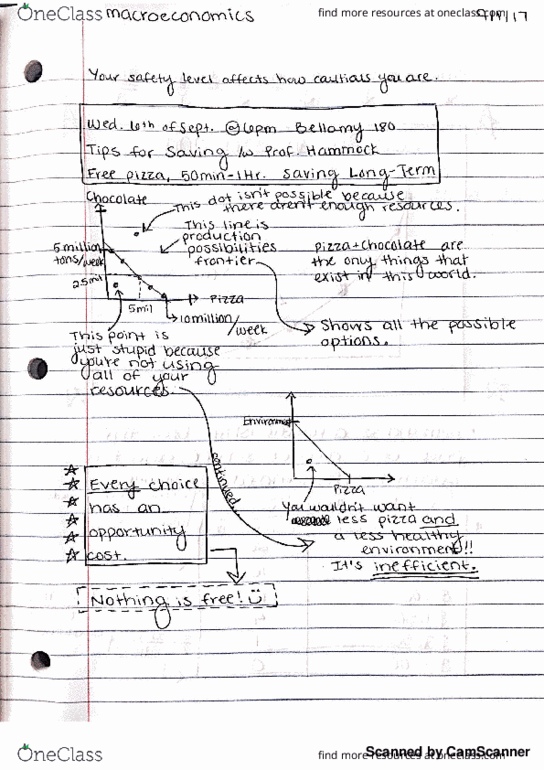 OneClass
macroeconomics
find more resources at oneclass.com
Your safety level affects how cautious you are.
Wed. 6th of Sept. @6pm Bellamy 180
Tips for Saving /w Prof. Hammock
Free pizza, 50min-1Hr. Saving Long-Term
Chocolate
This dot isn't possible because
there aren't enough resources.
This line is
production
possibilities
frontier
5 million
tons/week
2.5mil
5mil
Pizza
10million/
week
Pizza + Chocolate are
the only things that
exist in this world.
Shows all the possible
options.
This point is
just stupid because
you're not using
all of your
resources.
continued...
Environment
Pizza
You wouldn't want
less pizza and
a less healthy
environment!!
It's inefficient.
Every choice
has an
opportunity
cost.
Nothing is free!
OneClass
find more resources at oneclass.com
Scanned by CamScanner